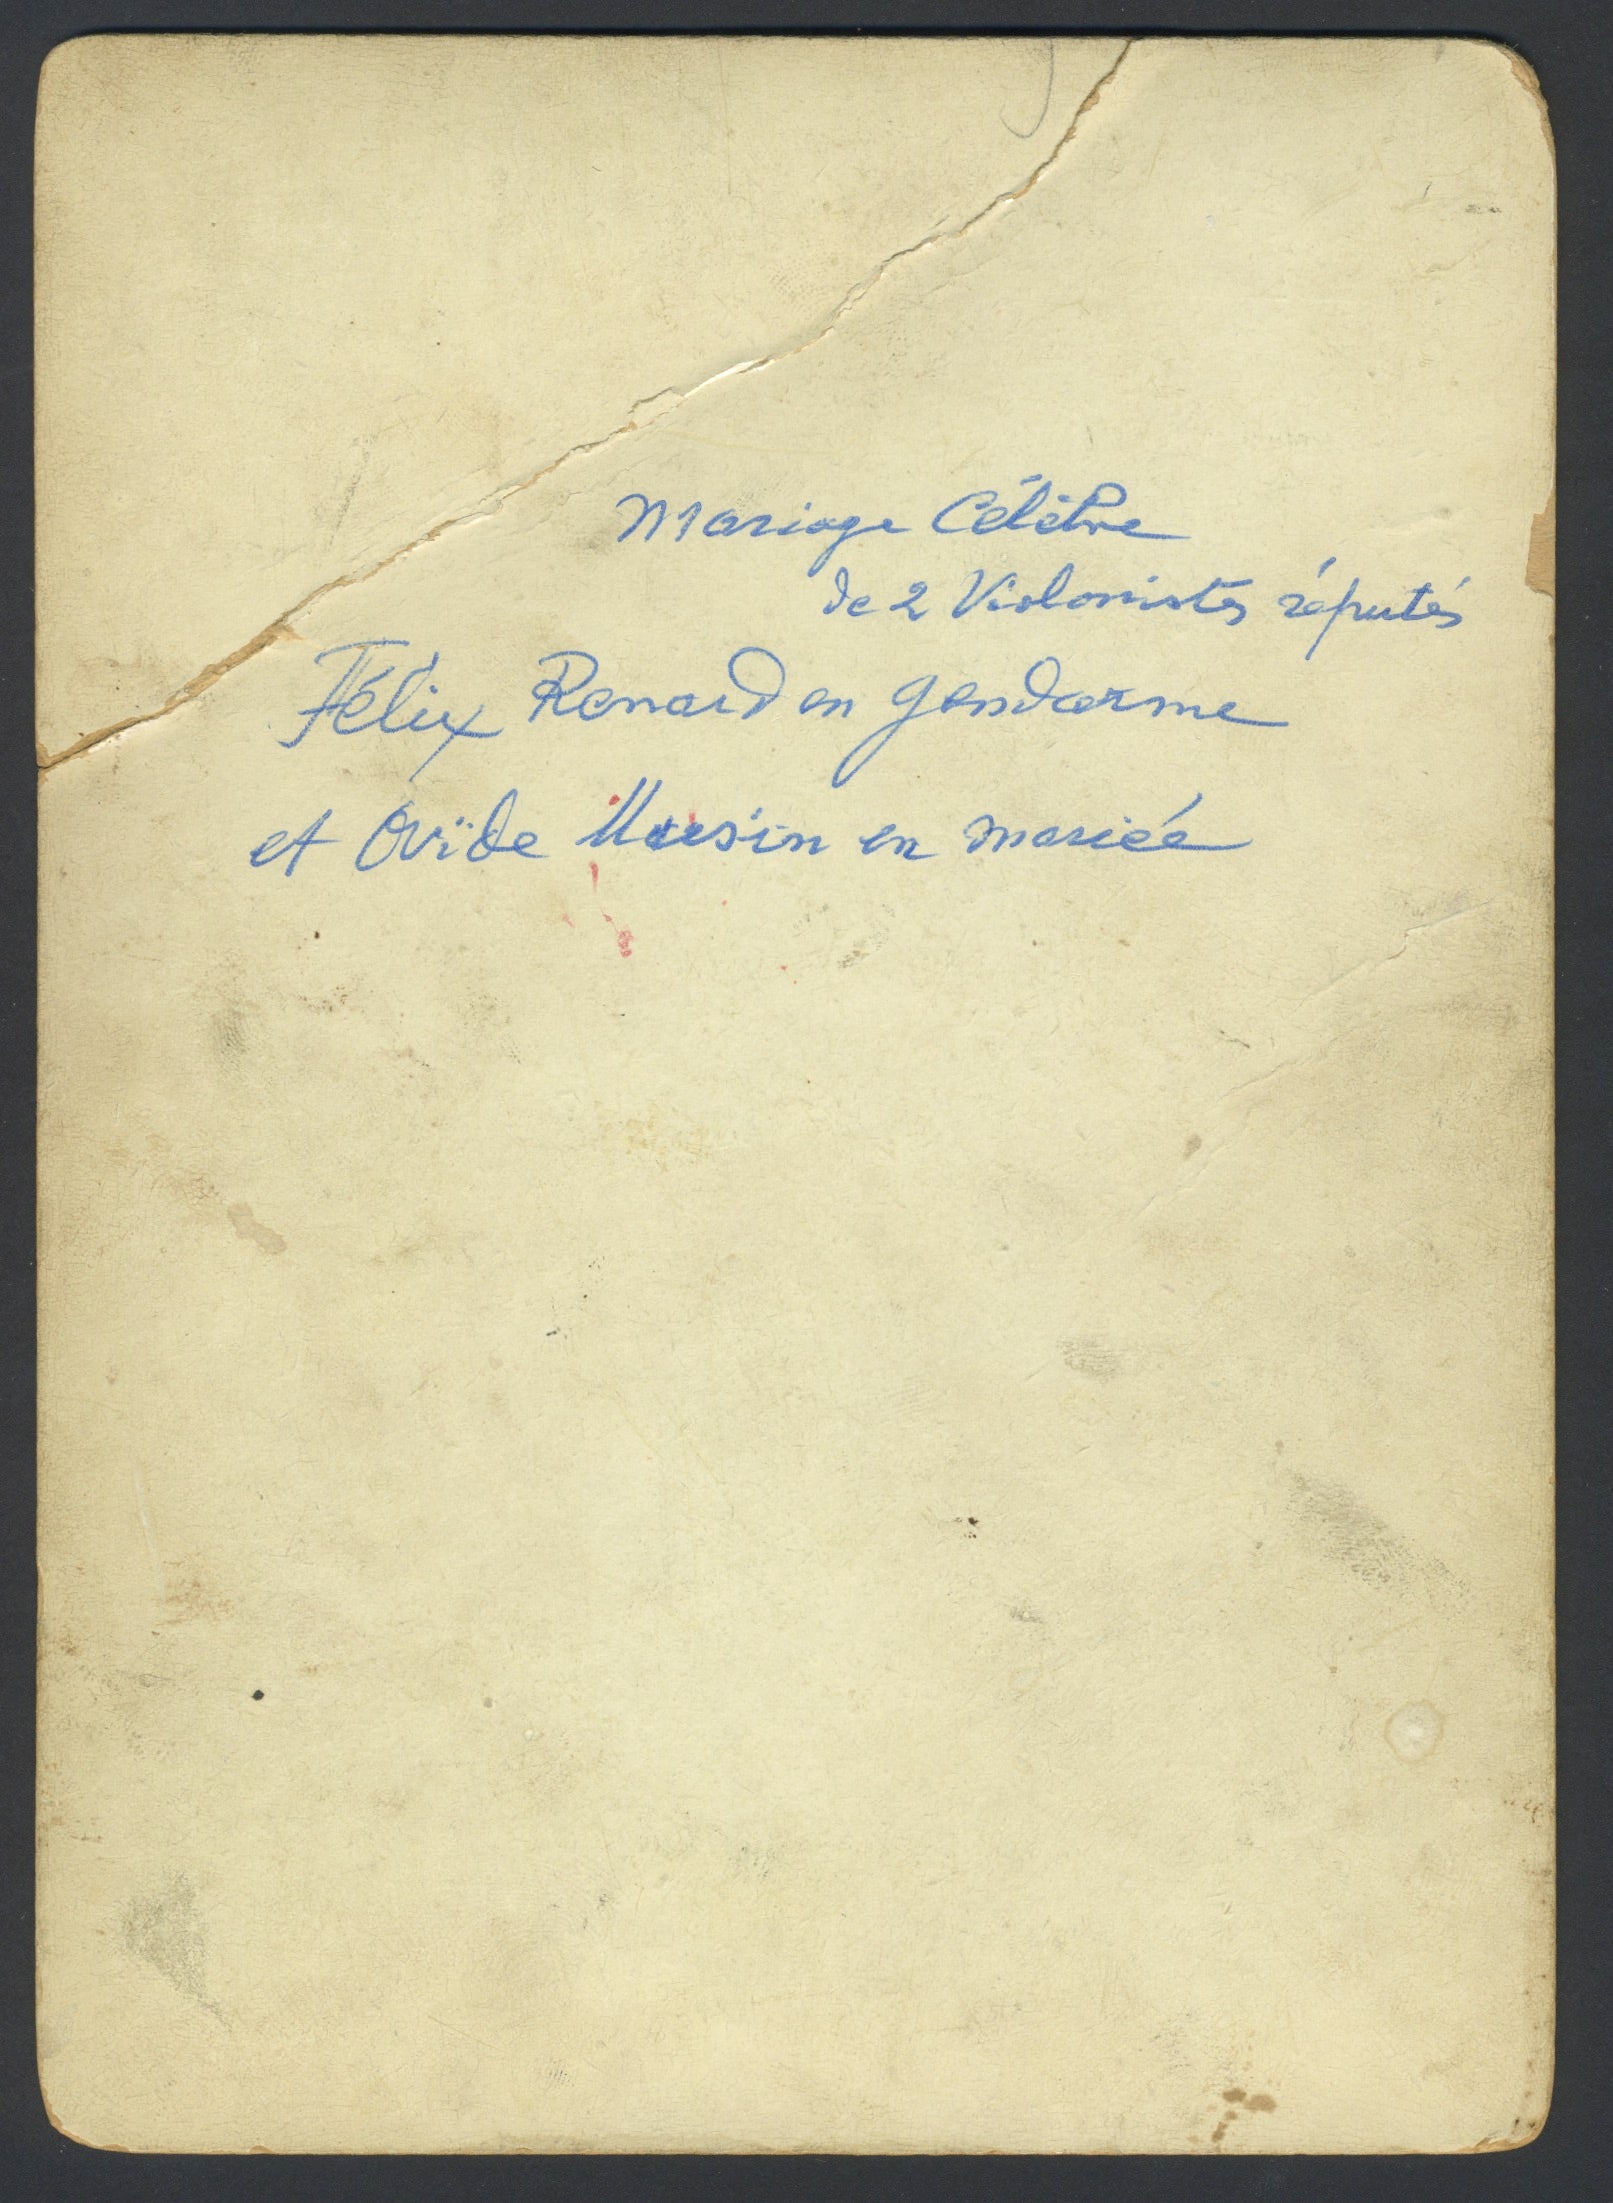 Mariage Célèbre
de 2 Violonistes réputés
Félix Renard en gendarme
et Ovïde Musin en mariée